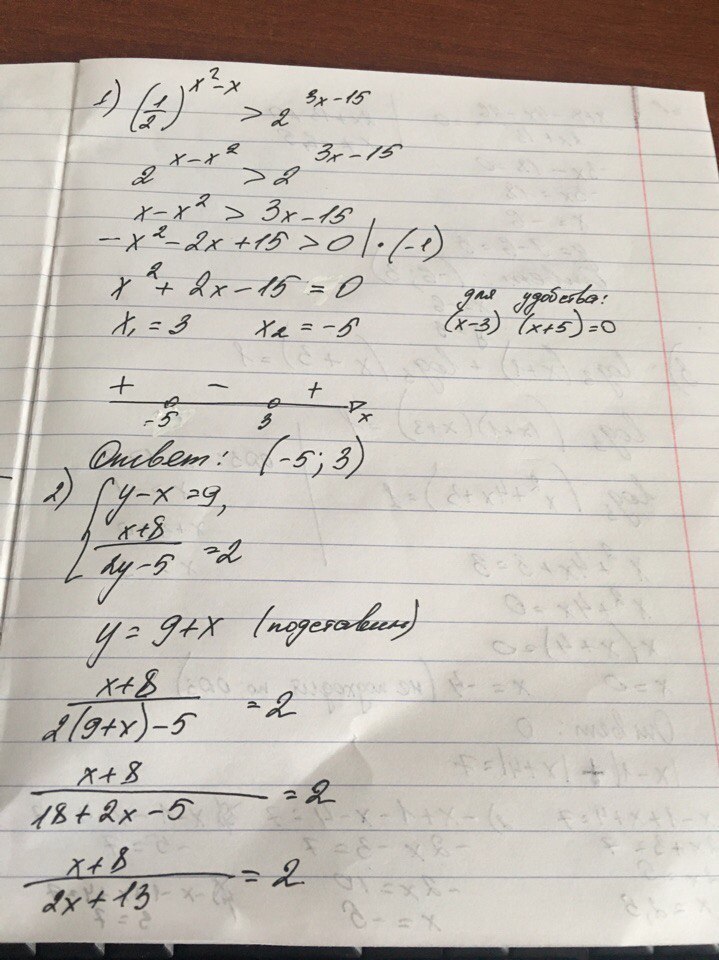 1) (1/2)^(x²-x) > 2^(3x-15)
2^(x-x²) > 2^(3x-15)
x-x² > 3x-15
-x²-2x+15>0 | ·(-1)
x²+2x-15=0
для удобства:
x₁=3 x₂=-5 (x-3) (x+5)=0
+ - +
-5 3 x
Ответ: (-5; 3)
2) { y-x=9,
(x+8)/(2y-5) =2
y=9+x (подставим)
(x+8)/(2(9+x)-5) =2
(x+8)/(18+2x-5) =2
(x+8)/(2x+13) =2